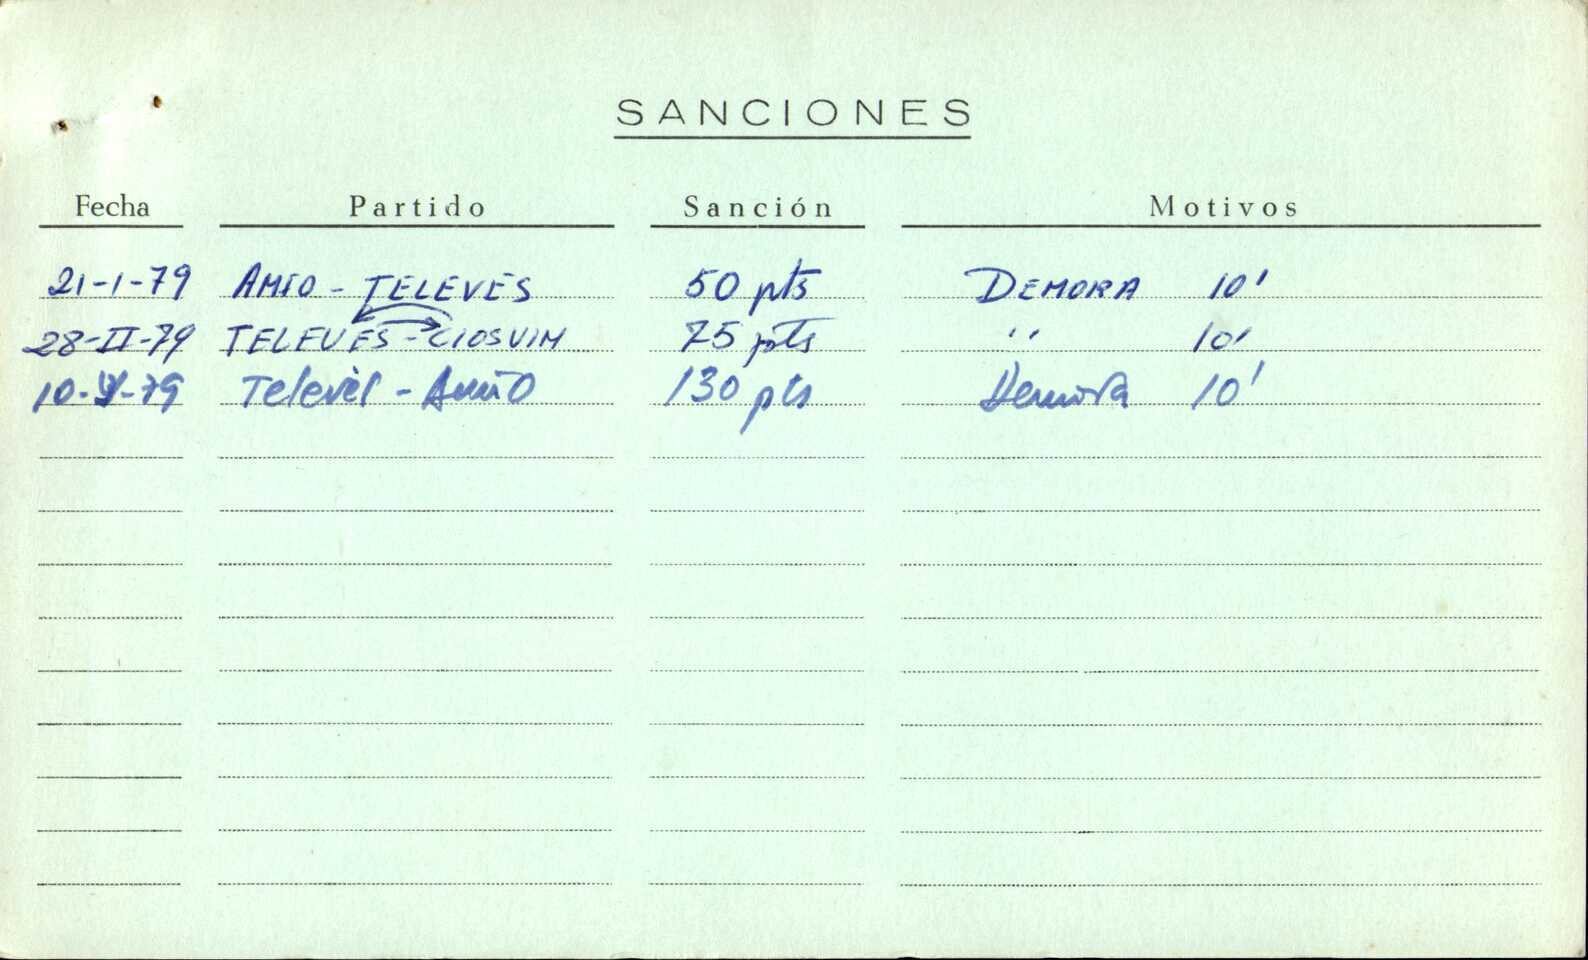 SANCIONES
Fecha Partido Sanción Motivos
21-1-79 AMIO - TELEVES 50 pts DEMORA 10'
28-II-79 TELEVES - CIOSVIM 75 pts " 10'
Televés - Amio 130 pts Demora 10'